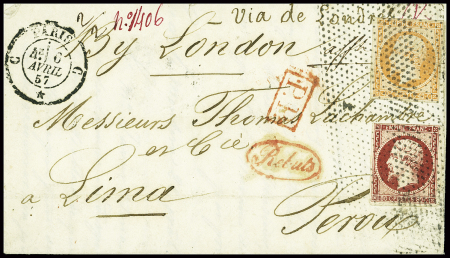 nº 1406
Via de Londres
PARIS
C C
6
AVRIL
57
By London
P.P.
Messieurs Thomas Lachambre
et Cie
Rebuts
à Lima
Perou